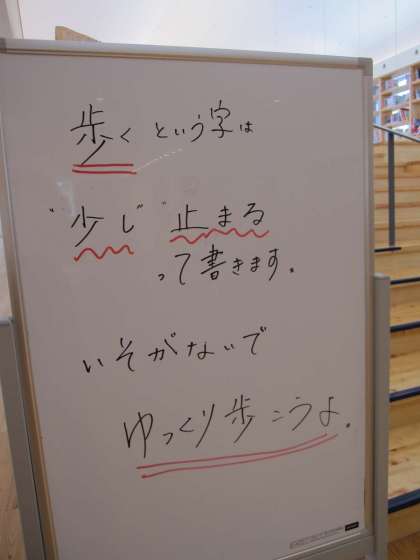 歩くという字は
"少し" "止まる
って書きます。
いそがないで
ゆっくり歩こうよ。